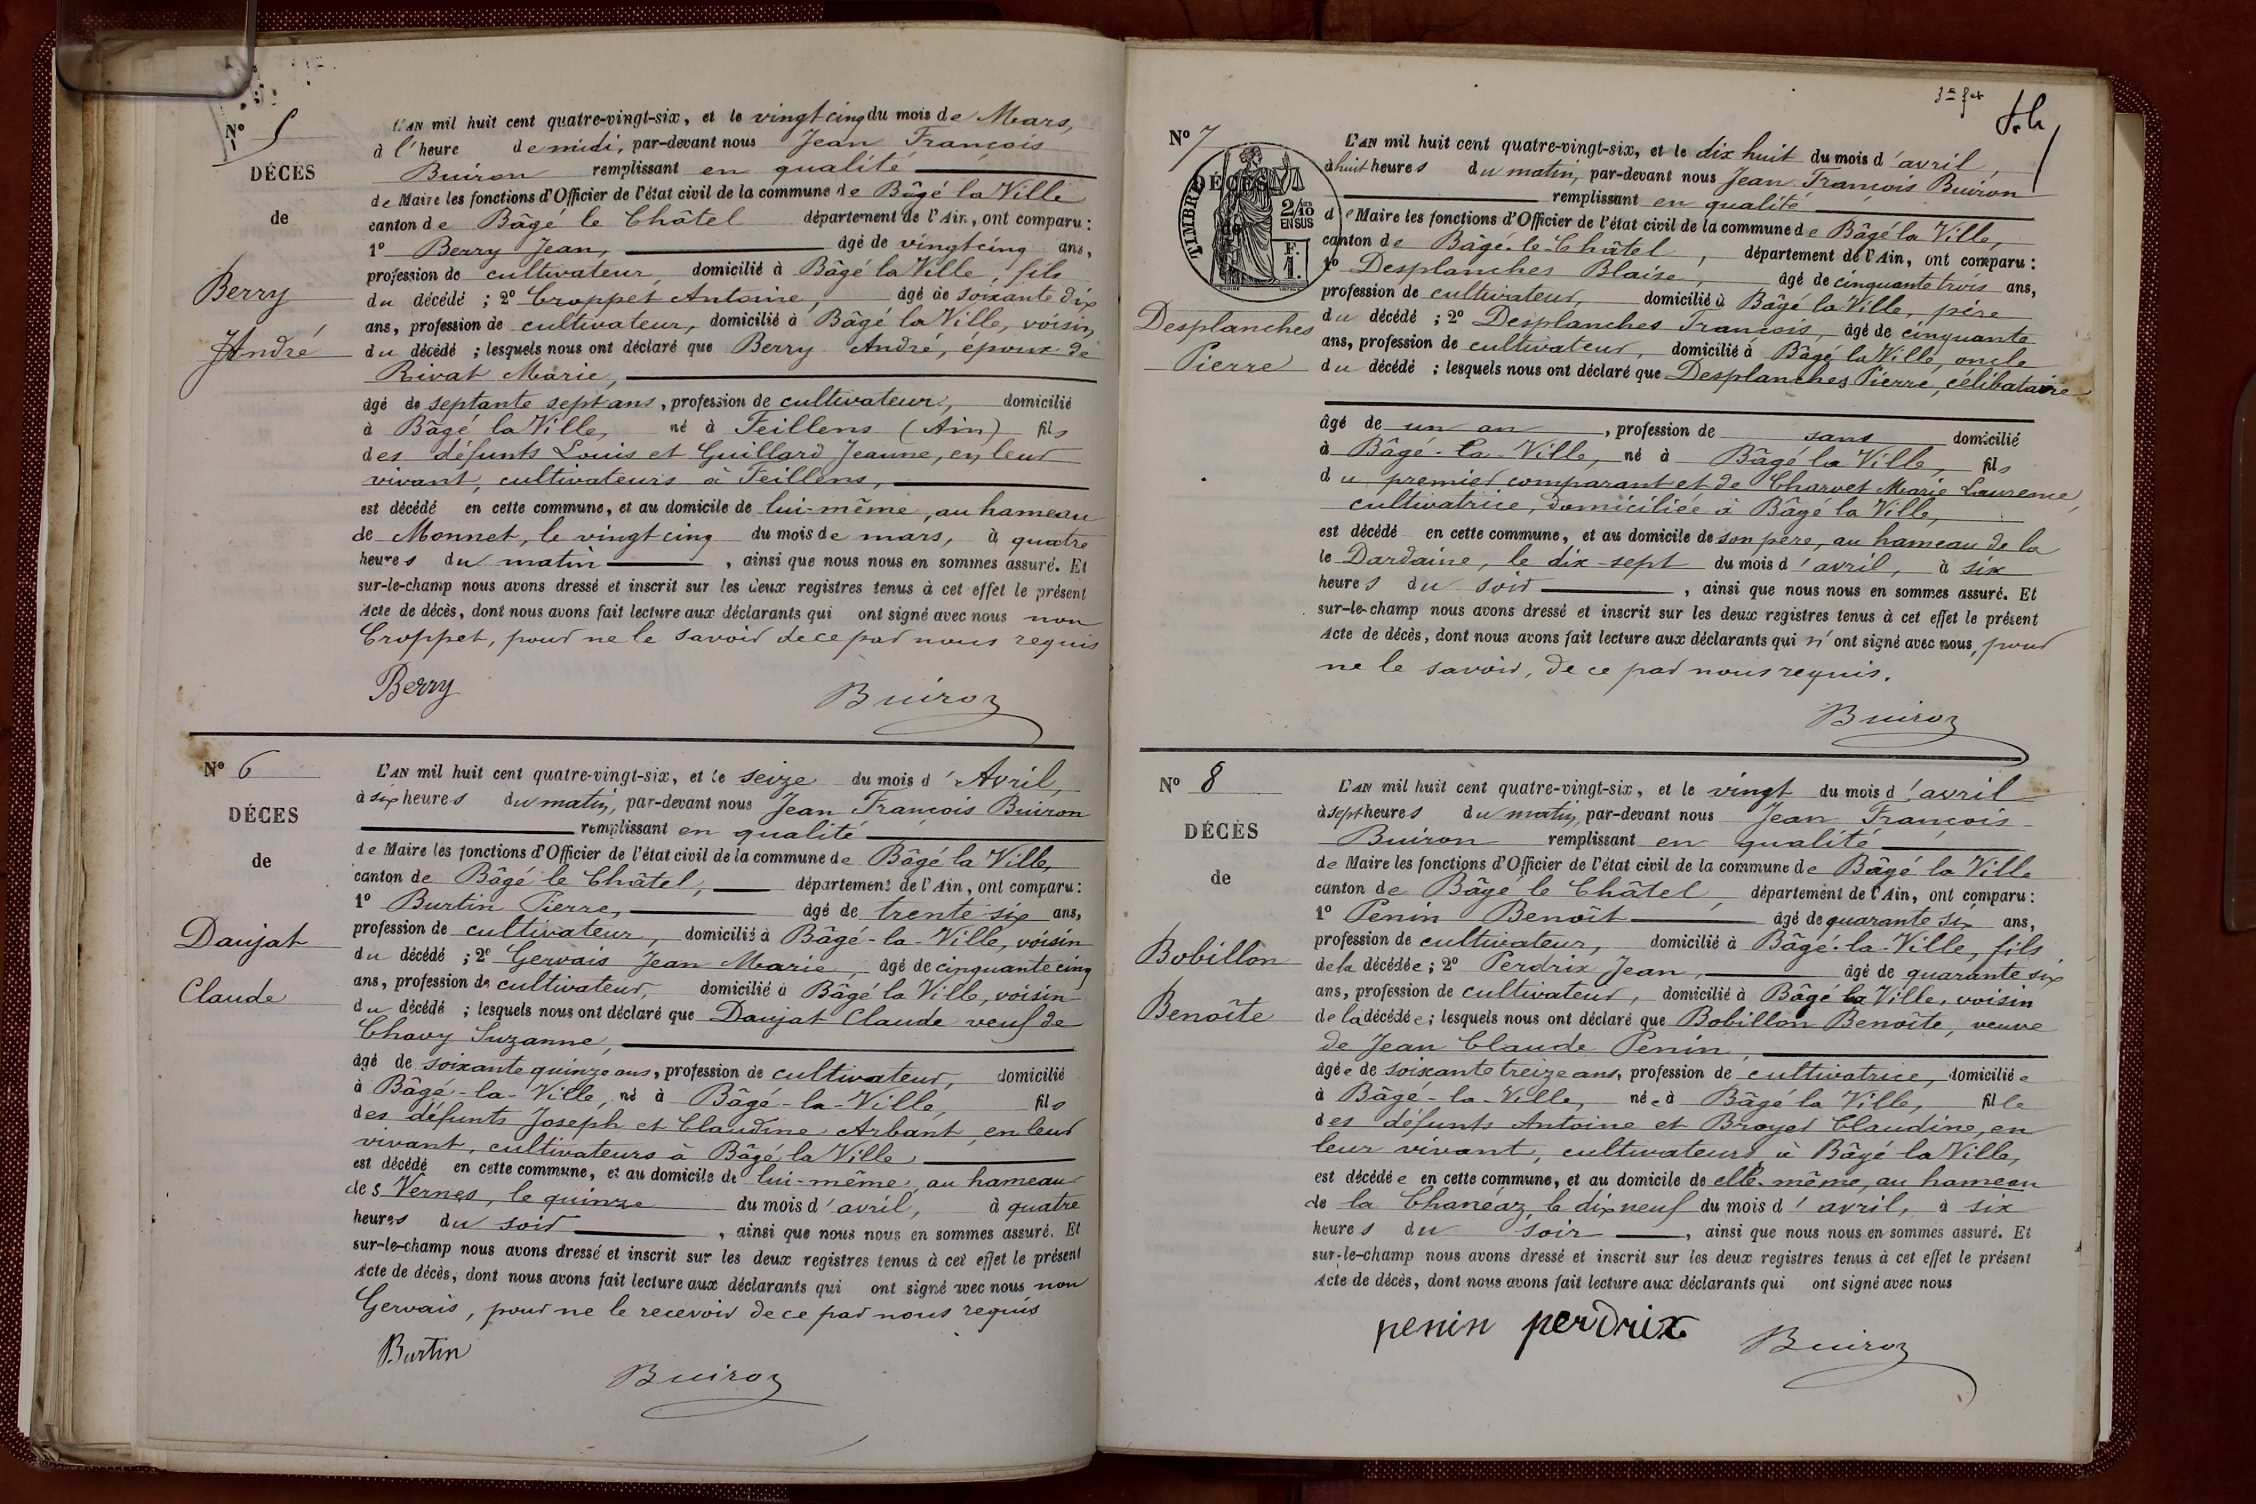 N° 5
DÉCÈS
de
Berry
André
L'AN mil huit cent quatre-vingt-six, et le vingt cinq du mois de Mars,
à l'heure de midi, par-devant nous Jean François
Buiron remplissant en qualité
de Maire les fonctions d'Officier de l'état civil de la commune de Bâgé la Ville
canton de Bâgé le Châtel département de l'Ain, ont comparu :
1° Berry Jean, âgé de vingt cinq ans,
profession de cultivateur, domicilié à Bâgé la Ville, fils
du décédé ; 2° Croppet Antoine, âgé de soixante dix
ans, profession de cultivateur, domicilié à Bâgé la Ville, voisin
du décédé ; lesquels nous ont déclaré que Berry André, époux de
Rivat Marie,
âgé de septante sept ans, profession de cultivateur, domicilié
à Bâgé la Ville, né à Feillens (Ain) fils
des défunts Louis et Guillard Jeanne, en leur
vivant, cultivateurs à Feillens,
est décédé en cette commune, et au domicile de lui-même, au hameau
de Monnet, le vingt cinq du mois de mars, à quatre
heures du matin, ainsi que nous nous en sommes assuré. Et
sur-le-champ nous avons dressé et inscrit sur les deux registres tenus à cet effet le présent
Acte de décès, dont nous avons fait lecture aux déclarants qui ont signé avec nous non
Croppet, pour ne le savoir de ce par nous requis
Berry Buiron
N° 6
DÉCES
de
Daujat
Claude
L'AN mil huit cent quatre-vingt-six, et le seize du mois d'Avril,
à six heures du matin, par-devant nous Jean François Buiron
remplissant en qualité
de Maire les fonctions d'Officier de l'état civil de la commune de Bâgé la Ville,
canton de Bâgé le Châtel, département de l'Ain, ont comparu :
1° Burtin Pierre, âgé de trente six ans,
profession de cultivateur, domicilié à Bâgé-la-Ville, voisin
du décédé ; 2° Gervais Jean Marie, âgé de cinquante cinq
ans, profession de cultivateur, domicilié à Bâgé la Ville, voisin
du décédé ; lesquels nous ont déclaré que Daujat Claude veuf de
Chavy Suzanne,
âgé de soixante quinze ans, profession de cultivateur, domicilié
à Bâgé-la-Ville, né à Bâgé-la-Ville, fils
des défunts Joseph et Claudine Arbant, en leur
vivant, cultivateurs à Bâgé la Ville
est décédé en cette commune, et au domicile de lui-même, au hameau
des Vernes, le quinze du mois d'avril, à quatre
heures du soir, ainsi que nous nous en sommes assuré. Et
sur-le-champ nous avons dressé et inscrit sur les deux registres tenus à cet effet le présent
Acte de décès, dont nous avons fait lecture aux déclarants qui ont signé avec nous non
Gervais, pour ne le recevoir de ce par nous requis
Burtin
Buiron
3e fet
N° 7
DÉCÈS
de
TIMBRE
2/10 EN SUS
F. 1.
Desplanches
Pierre
L'AN mil huit cent quatre-vingt-six, et le dix huit du mois d'avril,
à huit heures du matin, par-devant nous Jean François Buiron
remplissant en qualité
de Maire les fonctions d'Officier de l'état civil de la commune de Bâgé la Ville,
canton de Bâgé-le-Châtel, département de l'Ain, ont comparu :
1° Desplanches Blaise, âgé de cinquante trois ans,
profession de cultivateur, domicilié à Bâgé la Ville, père
du décédé ; 2° Desplanches François, âgé de cinquante
ans, profession de cultivateur, domicilié à Bâgé la Ville, oncle
du décédé ; lesquels nous ont déclaré que Desplanches Pierre, célibataire
âgé de un an, profession de sans domicilié
à Bâgé-la-Ville, né à Bâgé la Ville, fils
du premier comparant et de Charvet Marie Laurence,
cultivatrice, domiciliée à Bâgé la Ville,
est décédé en cette commune, et au domicile de son père, au hameau de la
le Dardaine, le dix-sept du mois d'avril, à six
heures du soir, ainsi que nous nous en sommes assuré. Et
sur-le-champ nous avons dressé et inscrit sur les deux registres tenus à cet effet le présent
Acte de décès, dont nous avons fait lecture aux déclarants qui n'ont signé avec nous, pour
ne le savoir, de ce par nous requis.
Buiron
N° 8
DÉCÈS
de
Bobillon
Benoîte
L'AN mil huit cent quatre-vingt-six, et le vingt du mois d'avril
à sept heures du matin, par-devant nous Jean François
Buiron remplissant en qualité
de Maire les fonctions d'Officier de l'état civil de la commune de Bâgé la Ville
canton de Bâgé le Châtel, département de l'Ain, ont comparu :
1° Penin Benoît âgé de quarante six ans,
profession de cultivateur, domicilié à Bâgé-la-Ville, fils
de la décédée ; 2° Perdrix Jean, âgé de quarante six
ans, profession de cultivateur, domicilié à Bâgé la Ville, voisin
de la décédée ; lesquels nous ont déclaré que Bobillon Benoîte, veuve
de Jean Claude Penin,
âgée de soixante treize ans, profession de cultivatrice, domiciliée
à Bâgé-la-Ville, née à Bâgé la Ville, fille
des défunts Antoine et Broyer Claudine, en
leur vivant, cultivateurs à Bâgé la Ville,
est décédée en cette commune, et au domicile de elle-même, au hameau
de la Chanéaz, le dix neuf du mois d'avril, à six
heures du soir, ainsi que nous nous en sommes assuré. Et
sur-le-champ nous avons dressé et inscrit sur les deux registres tenus à cet effet le présent
Acte de décès, dont nous avons fait lecture aux déclarants qui ont signé avec nous
penin perdrix Buiron